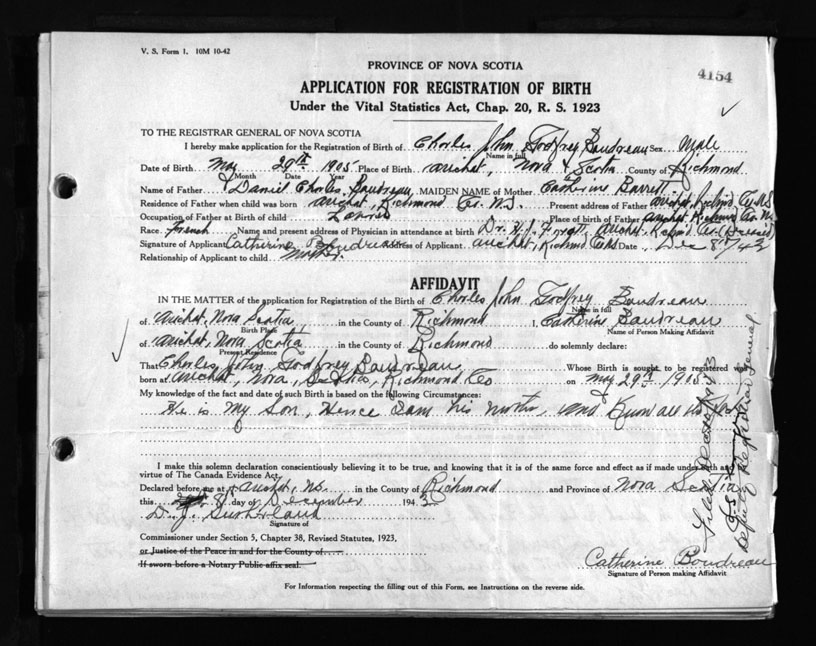 V. S. Form 1. 10M 10-42
4154
PROVINCE OF NOVA SCOTIA
APPLICATION FOR REGISTRATION OF BIRTH
Under the Vital Statistics Act, Chap. 20, R. S. 1923
TO THE REGISTRAR GENERAL OF NOVA SCOTIA
I hereby make application for the Registration of Birth of Charles John Godfrey Boudreau Sex Male
Name in full
Date of Birth May 29th 1905 Place of Birth Arichat, Nova Scotia County of Richmond
Month Date Year
Name of Father Daniel Charles Boudreau MAIDEN NAME of Mother Catherine Barrett
Residence of Father when child was born Arichat, Richmond Co. N.S. Present address of Father Arichat, Richmd Co NS
Occupation of Father at Birth of child Place of birth of Father Arichat Richmd Co. NS
Race French Name and present address of Physician in attendance at birth Dr. Arichat, Richmd Co. (Deceased)
Signature of Applicant Catherine Boudreau Address of Applicant Arichat, Richmd Co NS Date Dec 8th/42
Relationship of Applicant to child Mother
AFFIDAVIT
IN THE MATTER of the application for Registration of the Birth of Charles John Godfrey Boudreau
Name in full
of Arichat, Nova Scotia in the County of Richmond I, Catherine Boudreau
Birth Place Name of Person Making Affidavit
of Arichat, Nova Scotia in the County of Richmond do solemnly declare:
Present Residence
That Charles John Godfrey Boudreau Whose Birth is sought to be registered was
born at Arichat, Nova Scotia, Richmond Co on May 29th 1905
My knowledge of the fact and date of such Birth is based on the following Circumstances:
He is My Son, Hence I am his mother, and Know all
I make this solemn declaration conscientiously believing it to be true, and knowing that it is of the same force and effect as if made under oath and
virtue of The Canada Evidence Act.
Declared before me at Arichat, N.S. in the County of Richmond and Province of Nova Scotia
this 8th day of December 194
D. J. Sutherland
Signature of
Commissioner under Section 5, Chapter 38, Revised Statutes, 1923,
or Justice of the Peace in and for the County of
If sworn before a Notary Public affix seal.
Catherine Boudreau
Signature of Person making Affidavit
For Information respecting the filling out of this Form, see Instructions on the reverse side.
Deputy Registrar General